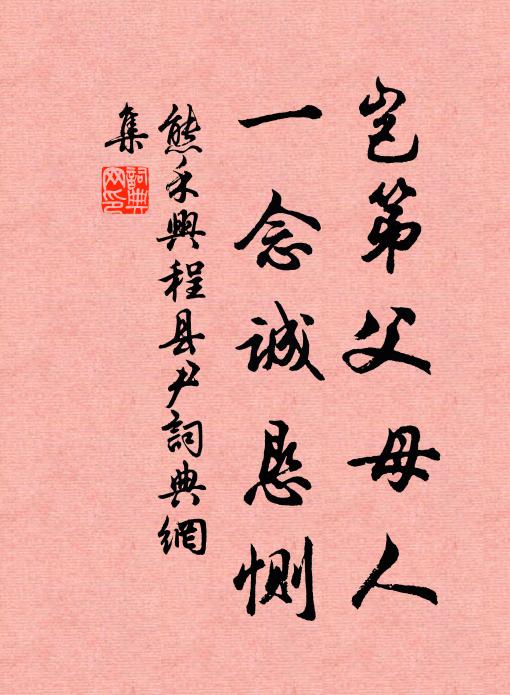 岂第父母人
一念诚恳恻
熊禾與程县尹詞典網
集
詞典网印